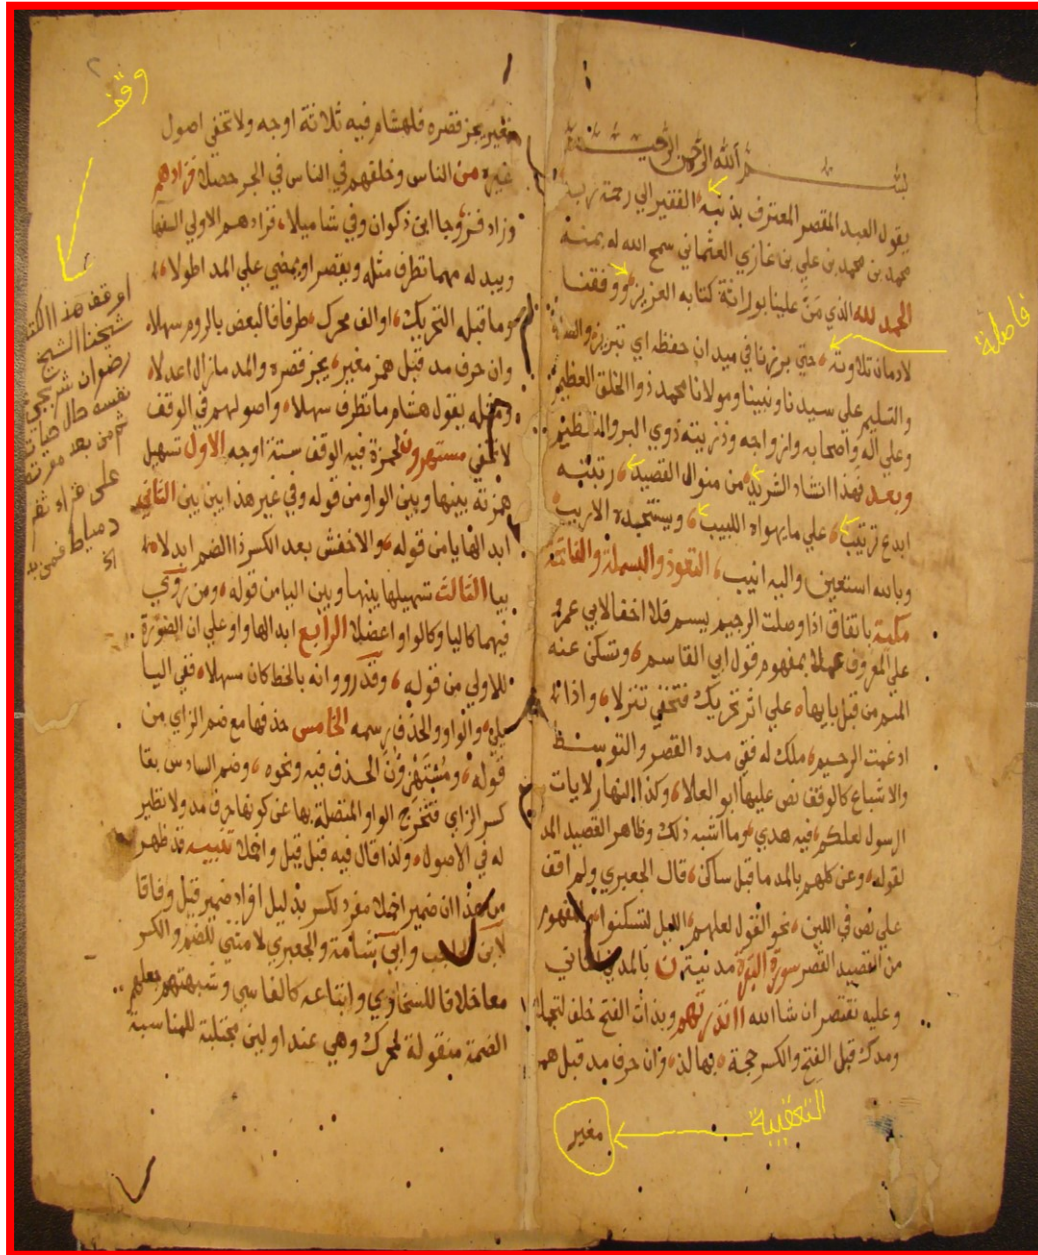 بسم الله الرحمن الرحيم
يقول العبد المقصر المعترف بذنبه الفقير الي رحمة ربه
محمد بن محمد بن علي بن غازي العثماني سمح الله له بمنه
الحمد لله الذي مَنَّ علينا بوراثة كتابه العزيز ووفقنا
لادمان تلاوته، حتي برزنا في ميدان حفظه اي تبريز والصلاة
والتسليم علي سيدنا ونبينا ومولانا محمد ذوا الخلق العظيم
وعلي آله وأصحابه وازواجه وذريته ذوي البر والتعظيم
وبعد فهذا انشاد الشريد، من منوال القصيد، رتبته
ابدع ترتيب، علي ما يهواه اللبيب، ويستجيده الاريب
وبالله استعين واليه انيب، التعوذ والبسملة والفاتحة
مكية باتفاق اذا وصلت الرحيم ببسم فلا اخفا لابي عمرو
علي المعروف عملا بمفهوم قول ابي القاسم، وتسكن عنه
الميم من قبل بايها، علي اثر تحريك فتخفي تنزلا، واذا
ادغمت الرحيم، ملك له ففي مده القصر والتوسط
والاشباع كالوقف نص عليها ابو العلا، وكذا النهار لايات
الرسول لعلكم، فيه هدي، وما اشبه ذلك وظاهر القصيد المد
لقوله، وعن كلهم بالمد ما قبل ساكن، قال الجعبري ولم اقف
علي نص في اللين، نحو القول لعلهم، الليل لتسكنوا المفهوم
من القصيد القصر سورة البقرة مدنية ن بالمدي الثاني
وعليه نقتصر ان شاالله اانذرتهم وبذات الفتح خلف لتجملا
ومدك قبل الفتح والكسر حجة، بها لذ، وان حرف مد قبل همز
مغير
التعقيبة
فاصلة
٢
وقف
مغير يجز قصره فلهشام فيه ثلاثة اوجه ولا تخفي اصول
غيره من الناس وخلقهم في الناس في الجر حصلا فزادهم
وزاد فز، وجا ابن ذكوان وفي شا ميلا، فزادهم الاولي السفها
ويبدله مهما تطرف مثله ويقصر او يمضي علي المد اطولا،
وما قبله التحريك، او الف محرك، طرفا فالبعض بالروم سهلا،
وان حرف مد قبل همز مغير، يجز قصره والمد مازال اعدلا،
ومثله بقوله هشام ما تطرف سهلا، واصولهم في الوقف
لا تخفي مستهزون لحمزة فيه الوقف ستة اوجه الاول تسهيل
همزته بينها وبين الواو من قوله وفي غير هذا بين بين الثاني
ابدالها يا من قوله، والاخفش بعد الكسر ذا الضم ابدلا،
بيا الثالث تسهيلها بينها وبين اليا من قوله، ومن روي
فيهما كاليا وكالواو اعضلا الرابع ابدالها واو علي ان الصورة
للاولي من قوله، وقد رووا انه بالخط كان مسهلا، ففي اليا
يلي، والواو والحذف رسمه الخامس حذفها مع ضم الزاي من
قوله، ومستهزؤن الحذف فيه ونحوه، وضم السادس بقا
كسر الزاي فتخرج الواو المتصلة بها عن كونها حرف مد ولا نظير
له في الاصول، ولذا قال فيه قبل قيل واخملا تنبيه قد ظهر
من هذا ان ضمير اخملا مفرد لكسر بدليل افراد ضمير قيل وفاقا
لابن الحاجب وابي شامة والجعبري لا مثني للضم والكسر
معا خلافا للسخاوي واتباعه كالفاسي وشبهتهم جعلهم
الضمة منقولة لمحرك وهي عند اولين مجتلبة للمناسبة
اوقف هذا الكتاب
شيخنا الشيخ
رضوان
نفسه حال حياته
ثم من بعد موته
على قراء ثغر
دمياط فمن بد